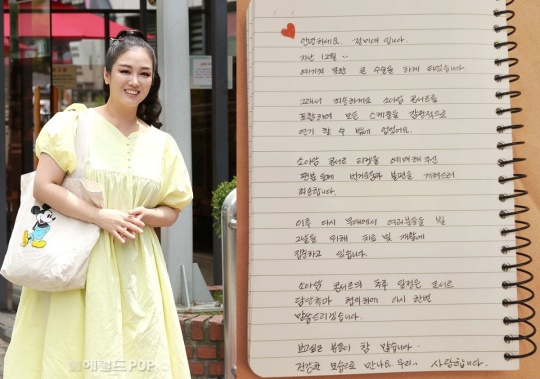 안녕하세요. 정미애 입니다.
지난 12월 ..
예기치 못한 큰 수술을 하게 되었습니다.
그래서 죄송하게도 소아암 콘서트를
포함하여 모든 스케줄을 잠정적으로
연기 할 수 밖에 없었어요.
소아암 콘서트 티켓을 예매해 주신
팬분들께 번거로움과 불편을 끼쳐드려
죄송합니다.
이후 다시 무대에서 여러분들을 뵐
그날을 위해 치료 및 재활에
집중하고 있습니다.
소아암 콘서트의 추후 일정은 콘서트
담당측과 협의하여 다시 한번
말씀드리겠습니다.
보고싶은 분들이 참 많습니다.
건강한 모습으로 만나요 우리.. 사랑합니다.
헤럴드POP